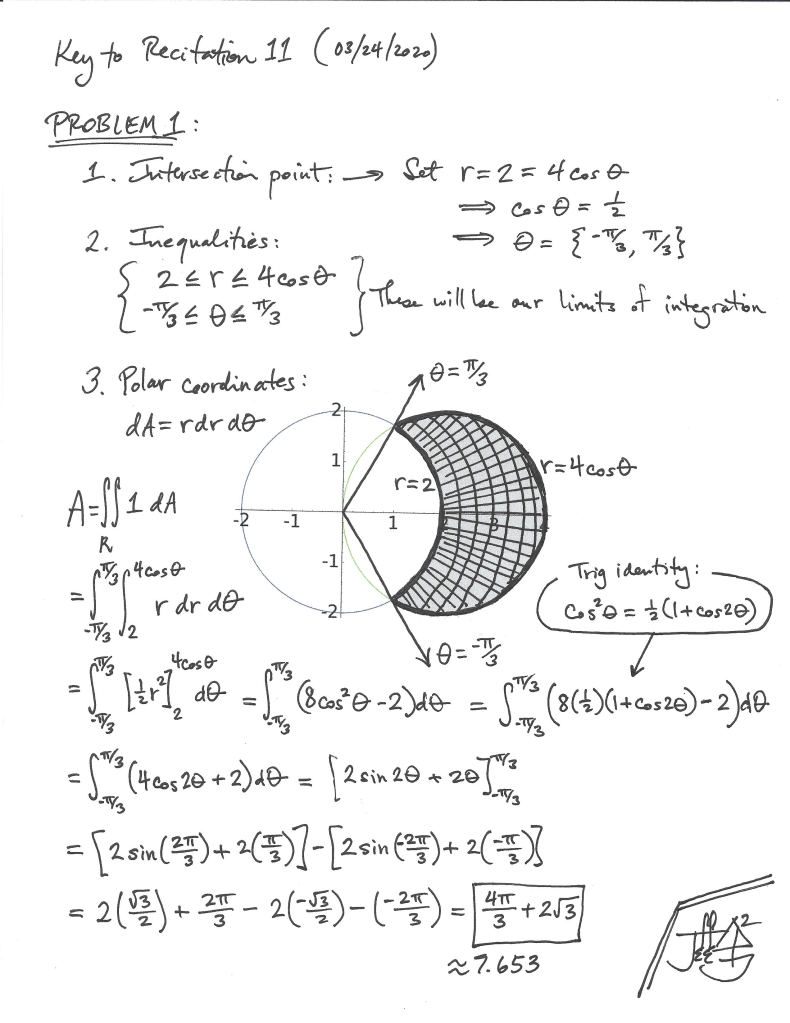 Key to Recitation 11 (03/24/2020)
PROBLEM 1:
1. Intersection point: → Set r = 2 = 4 cos θ
⟹ cos θ = 1/2
2. Inequalities: ⟹ θ = {-π/3, π/3}
{ 2 ≤ r ≤ 4cosθ
-π/3 ≤ θ ≤ π/3 } These will be our limits of integration
3. Polar coordinates:
dA = r dr dθ
θ = π/3
2
1
-2 -1 1 2 3 4
-1
-2
r = 2
r = 4cosθ
θ = -π/3
A = ∬_R 1 dA
= ∫_{-π/3}^{π/3} ∫_2^{4cosθ} r dr dθ
Trig identity:
Cos²θ = 1/2(1+cos2θ)
= ∫_{-π/3}^{π/3} [1/2 r²]_2^{4cosθ} dθ = ∫_{-π/3}^{π/3} (8cos²θ - 2)dθ = ∫_{-π/3}^{π/3} (8(1/2)(1+cos2θ) - 2)dθ
= ∫_{-π/3}^{π/3} (4cos2θ + 2)dθ = [2sin2θ + 2θ]_{-π/3}^{π/3}
= [2sin(2π/3) + 2(π/3)] - [2sin(-2π/3) + 2(-π/3)]
= 2(√3/2) + 2π/3 - 2(-√3/2) - (-2π/3) = 4π/3 + 2√3
≈ 7.653